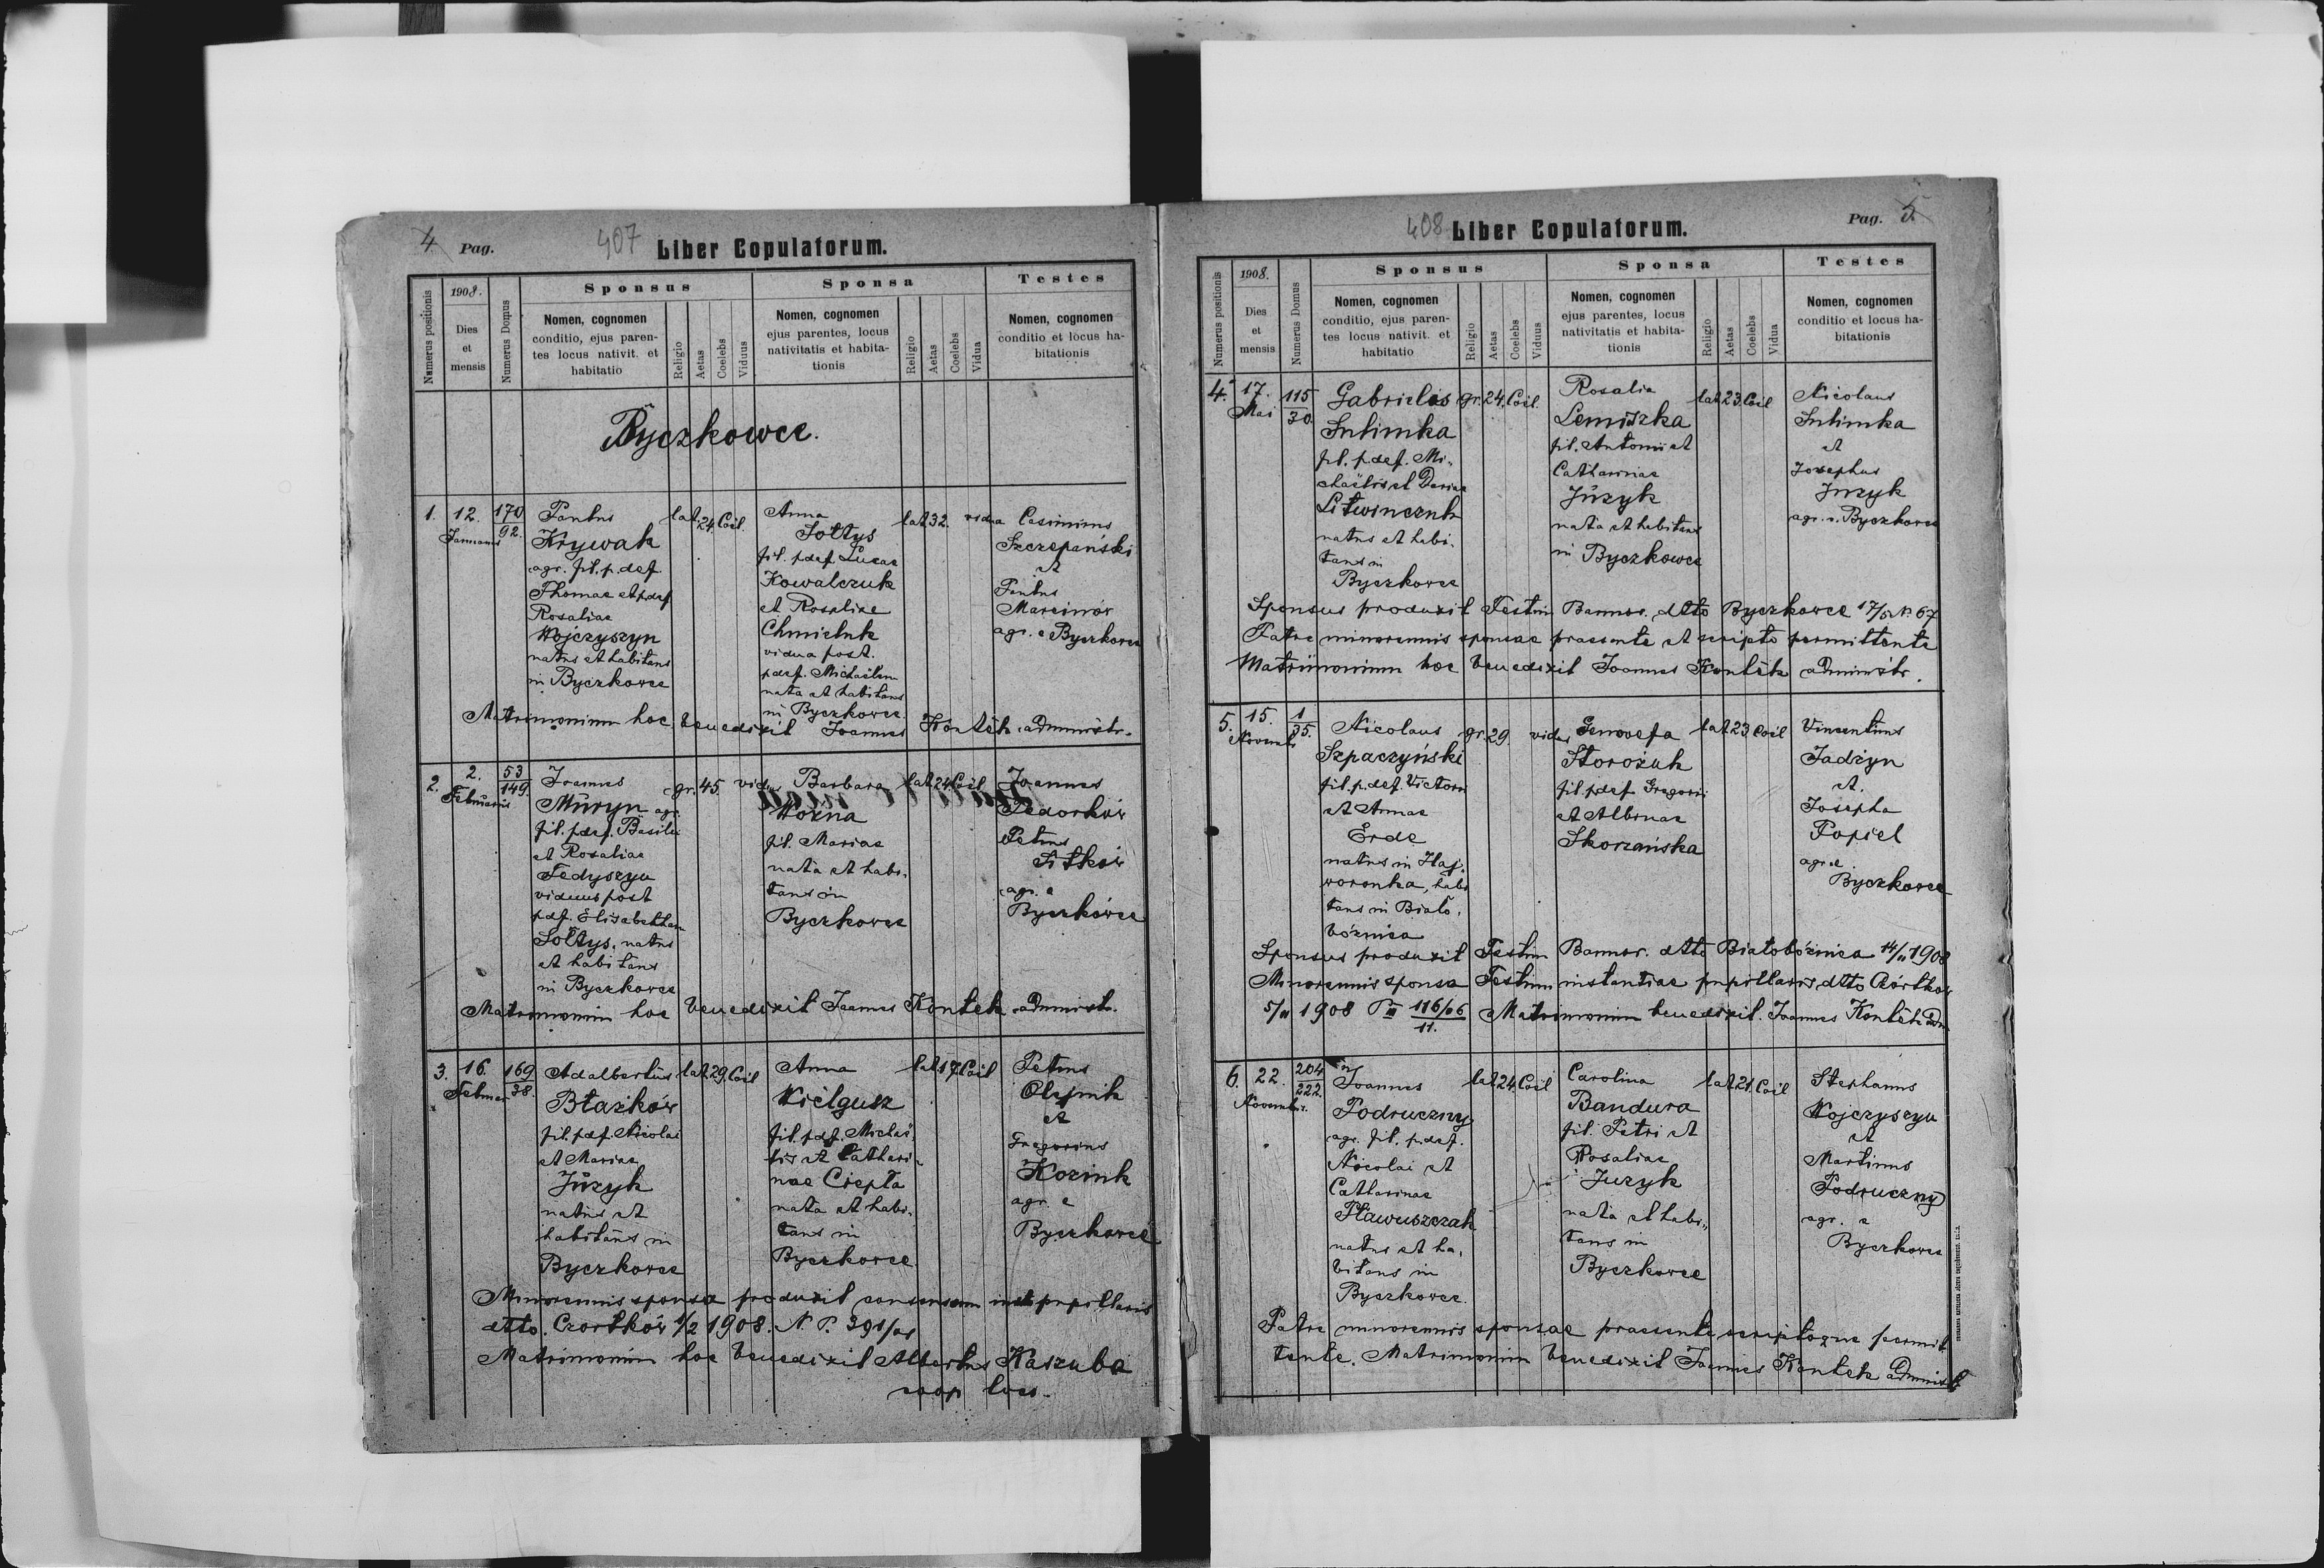 4 Pag. 407 Liber Copulatorum.
Numerus positionis
1908.
Dies
et
mensis
Numerus Domus
Sponsus
Nomen, cognomen
conditio, ejus paren-
tes locus nativit. et
habitatio
Religio
Aetas
Coelebs
Viduus
Sponsa
Nomen, cognomen
ejus parentes, locus
nativitatis et habita-
tionis
Religio
Aetas
Coelebs
Vidua
Testes
Nomen, cognomen
conditio et locus ha-
bitationis
Byczkowce.
1.
12.
Januarius
170
92.
Krywak
agr. fil. p. def.
Thomae et p def
Rosaliae
Wojczyszyn
natus et habitans
in Byczkowce
lat. 24. Coel.
Anna
Sołtys
fil. pdef. Lucae
Kowalczuk
et Rosaliae
Chmieluk
vidua post.
pdef. Michaëlem
nata et habitans
in Byczkowce.
lat. 32. vidua
Casimirus
Szczepański
et
Marcinów
agr. e Byczkowce
Matrimonium hoc benedixit Joannes Kontek administr.
2.
2.
Februarii
53
149.
Joannes
Muryn agr.
fil. pdef. Basilii
et Rosaliae
Fedyszyn
viduus post
pdf. Elisabetham
Sołtys, natus
et habitans
in Byczkowce
gr. 45. vidus
Barbara
Woźna
fil. Mariae
nata et habi-
tans in
Byczkowce
lat. 24. Coel.
Joannes
Fedorków
Petrus
Fitków
agr. e
Byczkowce
Matrimonium hoc benedixit Joannes Kontek administr.
3.
16.
Februar.
169
38.
Adalbertus
Błażków
fil. pdf. Nicolai
et Mariae
Juzyk
natus et
habitans in
Byczkowce
lat. 29. Coel
Anna
Kiełgusz
fil. pdf. Michaë-
lis et Cathari-
nae Ciepła
nata et habi-
tans in
Byczkowce
lat. 17. Coel
Petrus
Olejnik
et
Gregorius
Koziuk
agr. e
Byczkowce
Minorennis sponsa produxit consensum inst. pupillaris
dtto. Czortków 1/2 1908. N. P. 391/08
Matrimonium hoc benedixit Albertus Kaszuba
coop loci.
408 Liber Copulatorum. Pag. 5.
Numerus positionis
1908.
Dies
et
mensis
Numerus Domus
Sponsus
Nomen, cognomen
conditio, ejus paren-
tes locus nativit. et
habitatio
Religio
Aetas
Coelebs
Viduus
Sponsa
Nomen, cognomen
ejus parentes, locus
nativitatis et habita-
tionis
Religio
Aetas
Coelebs
Vidua
Testes
Nomen, cognomen
conditio et locus ha-
bitationis
4.
17.
Mai
115
30.
Gabrielis
Sulimka
fil. p. def. Mi-
chaëlis et Dariae
Litwinczuk
natus et habi-
tans in
Byczkowce
gr. 24. Coel.
Rosalia
Lemiszka
fil. Antonii et
Catharinae
Juzyk
nata et habitans
in Byczkowce
lat. 23. Coel
Nicolaus
Sulimka
et
Josephus
Juzyk
agr. e. Byczkowce
Sponsus produxit Testim Bannor. dtto Byczkowce 17/5 N. 67
Patre minorennis sponsae praesente et scripto permittente
Matrimonium hoc benedixit Joannes Kontek administr.
5.
15.
Novembr
1
35.
Nicolaus
Szpaczyński
fil. p. def. Victoris
et Annae
Erde
natus in Haj-
woronka, habi
tans in Biało-
bóżnica
gr. 29. vidus
Genovefa
Storożuk
fil. pdef Gregorii
et Albinae
Skorzańska
lat. 23. Coel
Vincentius
Jadżyn
et.
Josepha
Popiel
agr. e.
Byczkowce
Sponsus produxit Testim Bannor. dtto Białobóżnica 14/11 1908
Minorennis sponsa Testim instantiae pupillaris dtto Czórtków
5/11 1908 P III 116/06
11.
Matrimonium benedixit. Joannes Kontek adm
6.
22.
Novembr.
204
222.
Joannes
Podruczny
agr. fil. p. def.
Nicolai et
Catharinae
Hławuszczak
natus et ha-
bitans in
Byczkowce.
lat. 24. Coel
Carolina
Bandura
fil. Petri et
Rosaliae
Juzyk
nata et habi-
tans in
Byczkowce
lat. 21. Coel
Stephanus
Wojczyszyn
et
Martinus
Podruczny
agr. e
Byczkowce
Patre minorennis sponsae praesente scriptoque permit
tente. Matrimonium benedixit Joannes Kontek administr.